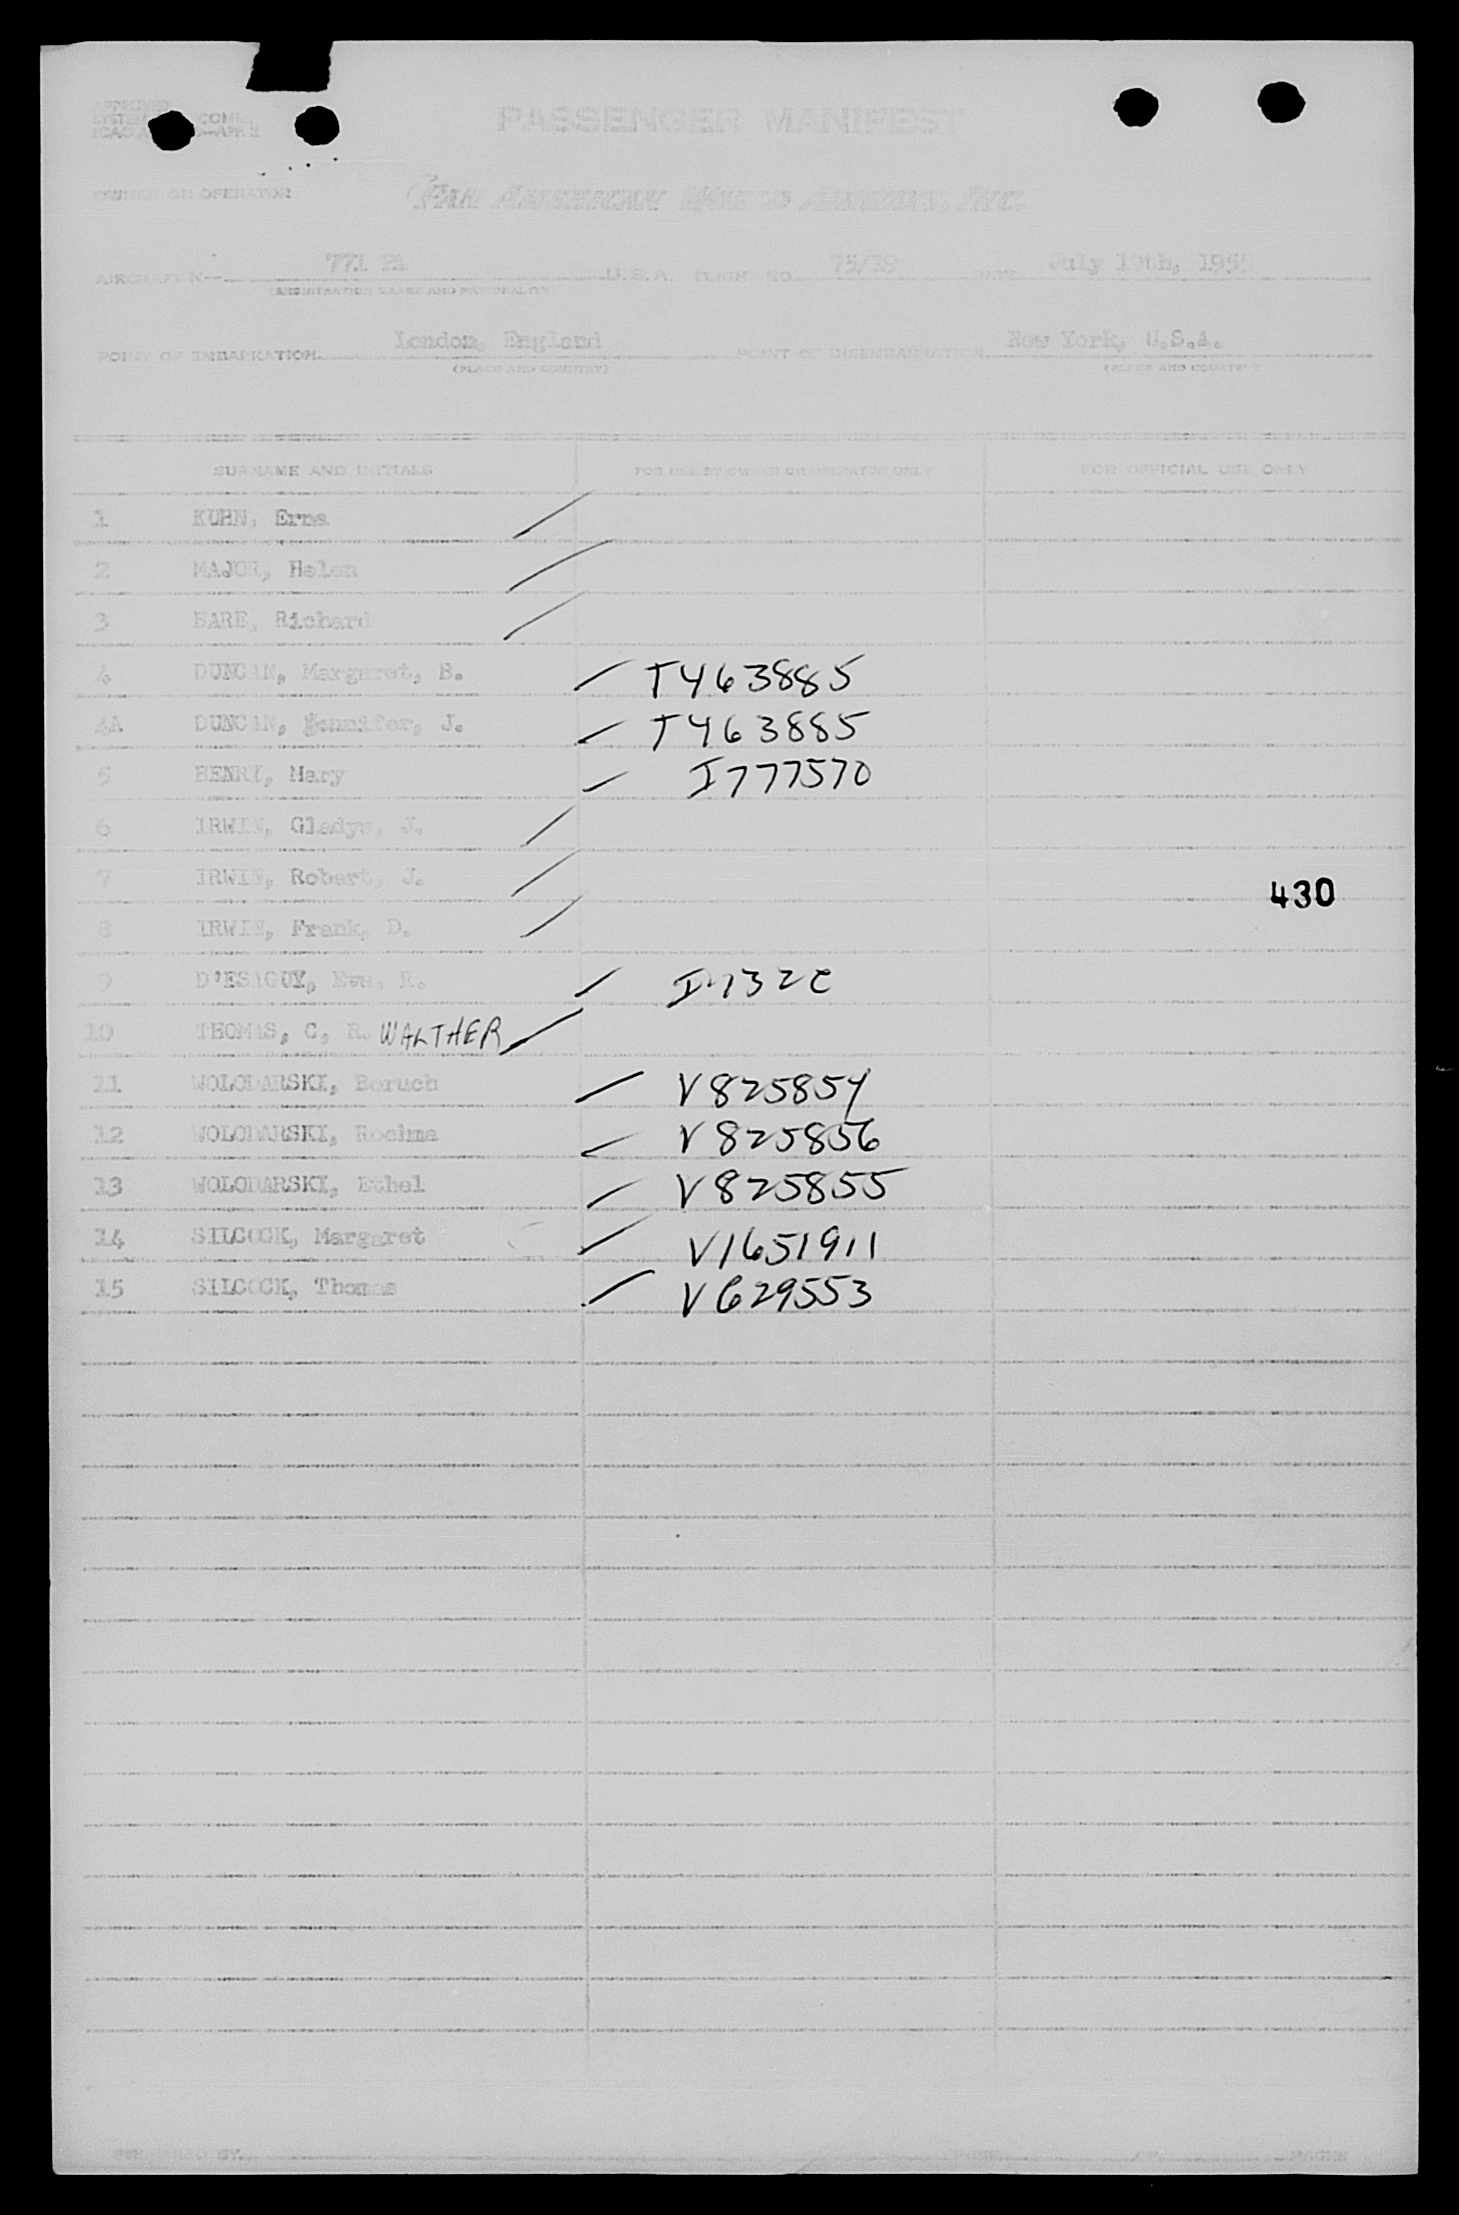 PASSENGER MANIFEST
OWNER OR OPERATOR PAN AMERICAN WORLD AIRWAYS, INC.
AIRCRAFT N— 771 PA U.S.A. FLIGHT NO. 75/19 DATE July 19th, 195
(REGISTRATION MARKS AND NATIONALITY)
POINT OF EMBARKATION London, England POINT OF DISEMBARKATION New York, U.S.A.
(PLACE AND COUNTRY) (PLACE AND COUNTRY)
SURNAME AND INITIALS FOR USE BY OWNER OR OPERATOR ONLY FOR OFFICIAL USE ONLY
1 KUHN, Erna
2 MAJOR, Helen
3 BARE, Richard
4 DUNCAN, Margaret, B. T463885
4A DUNCAN, Jennifer, J. T463885
5 HENRY, Mary I777570
6 IRWIN, Gladys, J.
7 IRWIN, Robert, J.
430
8 IRWIN, Frank, D.
9 D'ESAGUY, Eva, R.
10 THOMAS, C, R. WALTHER
11 WOLODARSKI, Boruch V825854
12 WOLODARSKI, Rochma V825856
13 WOLODARSKI, Ethel V825855
14 SILCOCK, Margaret V1651911
15 SILCOCK, Thomas V629553
PREPARED BY PAGE OF PAGES